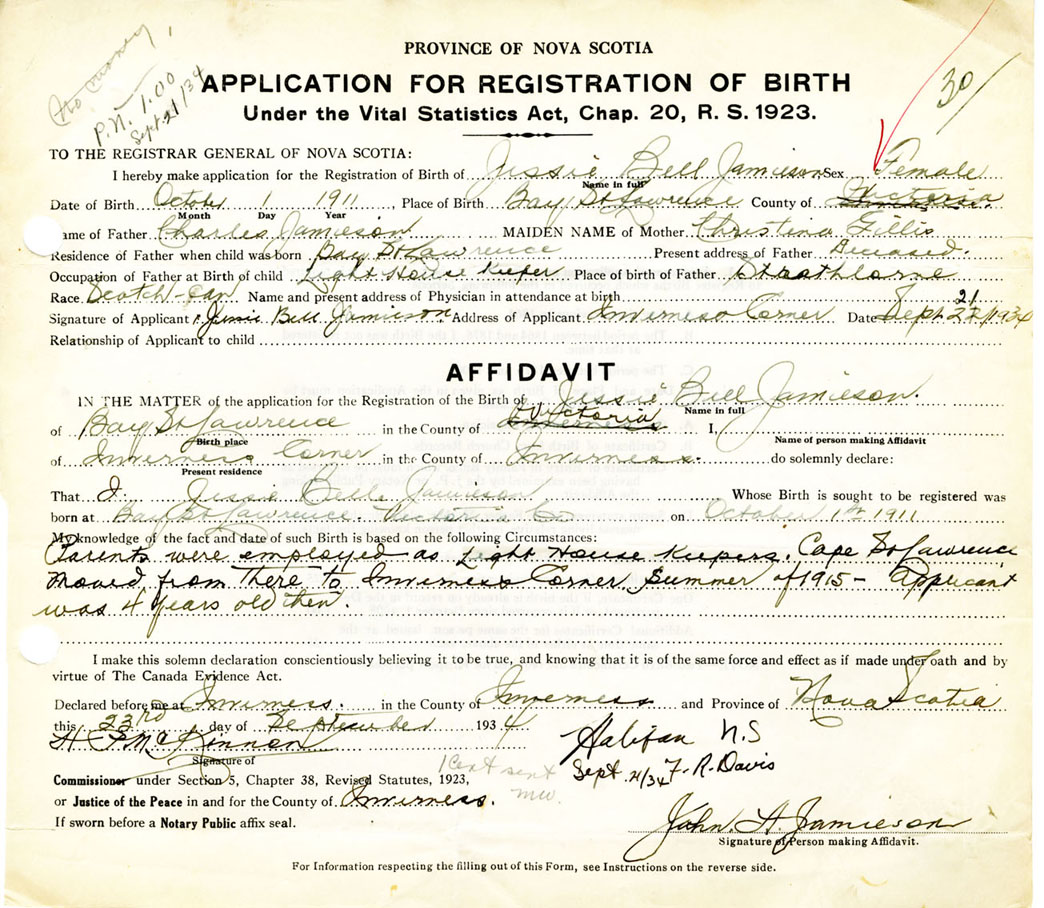 No money,
P.N. 1.00
Sept 21/34
30/
PROVINCE OF NOVA SCOTIA
APPLICATION FOR REGISTRATION OF BIRTH
Under the Vital Statistics Act, Chap. 20, R. S. 1923.
TO THE REGISTRAR GENERAL OF NOVA SCOTIA:
I hereby make application for the Registration of Birth of Jessie Bell Jamieson Sex Female
Name in full
Date of Birth October 1 1911, Place of Birth Bay St Lawrence County of Victoria.
Month Day Year
ame of Father Charles Jamieson MAIDEN NAME of Mother Christina Gillis
Residence of Father when child was born Bay St Lawrence Present address of Father Deceased.
Occupation of Father at Birth of child Light House Keeper Place of birth of Father Strathlorne
Race Scotch-Can Name and present address of Physician in attendance at birth
Signature of Applicant Jessie Bell Jamieson Address of Applicant Inverness Corner Date Sept 21 22/1934
Relationship of Applicant to child
AFFIDAVIT
IN THE MATTER of the application for the Registration of the Birth of Jessie Bell Jamieson.
Name in full
of Bay St Lawrence in the County of Victoria I,
Birth place Name of person making Affidavit
of Inverness Corner in the County of Inverness. do solemnly declare:
Present residence
That I Jessie Bell Jamieson Whose Birth is sought to be registered was
born at Bay St Lawrence. Victoria Co on October 1st 1911
My knowledge of the fact and date of such Birth is based on the following Circumstances:
Parents were employed as Light House Keepers. Cape St Lawrence
Moved from There to Inverness Corner Summer of 1915 - Applicant
was 4 years old then.
I make this solemn declaration conscientiously believing it to be true, and knowing that it is of the same force and effect as if made under oath and by
virtue of The Canada Evidence Act.
Declared before me at Inverness. in the County of Inverness and Province of Nova Scotia
this 23rd day of September 1934
H P McKinnon
Signature of
Halifax N.S
Sept 21/34 F. R. Davis
Commissioner under Section 5, Chapter 38, Revised Statutes, 1923,
1 Cert sent
mw.
or Justice of the Peace in and for the County of Inverness.
If sworn before a Notary Public affix seal.
John. A. Jamieson
Signature of Person making Affidavit.
For Information respecting the filling out of this Form, see Instructions on the reverse side.